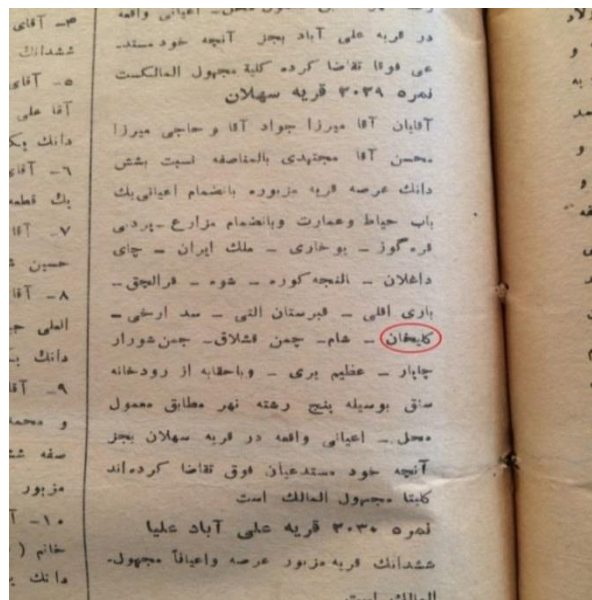 در قریه علی آباد بجز آنچه خود مستد-
عی فوقا تقاضا کرده کلیة مجهول المالکست
نمره ۳۰۲۹ قریه سهلان
آقایان آقا میرزا جواد آقا و حاجی میرزا
محسن آقا مجتهدی بالمناصفه نسبت بشش
دانك عرصه قریه مزبوره بانضمام اعیانی یك
باب حیاط وعمارت وبانضمام مزارع -پردبی
قره گوز - بوخاری - ملك ایران - چای
داغلان - النجه کوره - شوه - قرالجق -
باری اقلی - قبرستان التی - سد ارخی -
کلیخان - شام - چمن قشلاق - چمن شورار
چاپار - عظیم بری - وباحقابه از رودخانه
سنق بوسیله پنج رشته نهر مطابق معمول
محل - اعیانی واقعه در قریه سهلان بجز
آنچه خود مستدعیان فوق تقاضا کرده اند
کلیتا مجهول المالك است
نمره ۳۰۳۰ قریه علی آباد علیا
ششدانك قریه مزبور عرصه واعیاناً مجهول-
المالك است
۳- آقای
ششدانك
۵- آقای
آقا علی
دانك یك
۶- آقای
یك قطعه
۷- آقا
حسین
۸- آقا
دانك
۹- آقا
و محمد
صفه
مزبور
۱۰- آ
خانم (
دانك